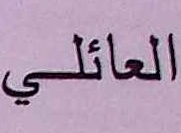 العائلي